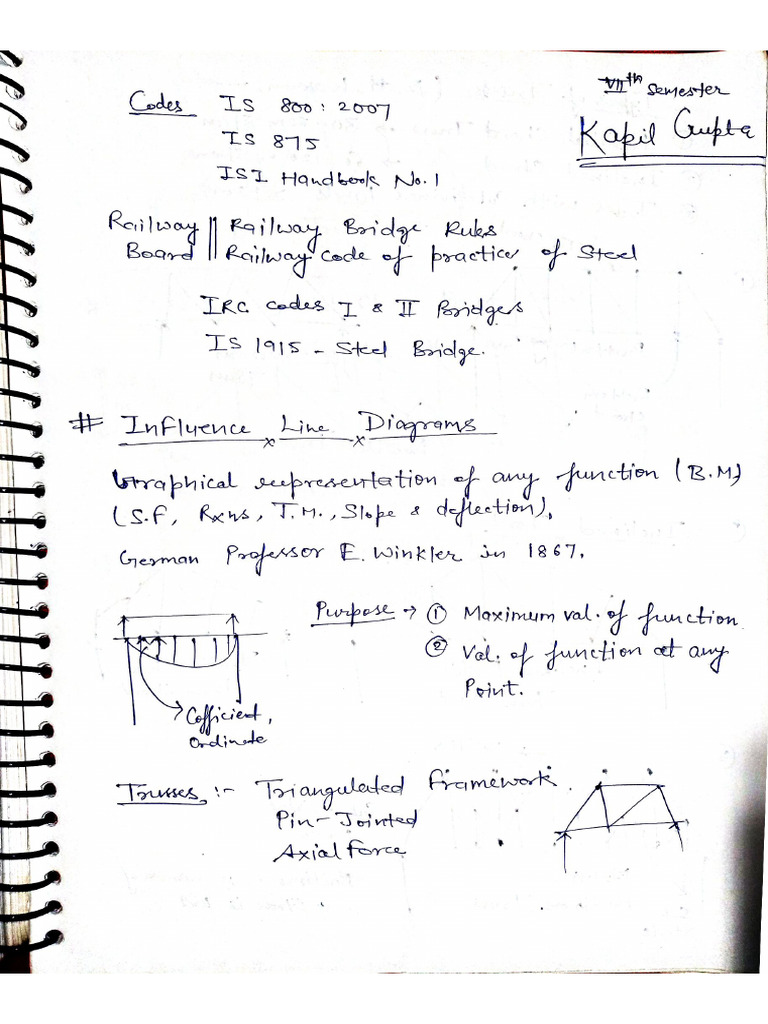 VIIth Semester
Kapil Gupta
Codes IS 800:2007
IS 875
ISI Handbook No.1
Railway Board || Railway Bridge Rules
Railway code of practice of Steel
IRC codes I & II Bridges
IS 1915 - Steel Bridge.
# Influence Line Diagrams
Graphical representation of any function (B.M)
(S.F, Rxns, T.M., Slope & deflection),
German Professor E. Winkler in 1867.
Purpose → ① Maximum val. of function
② Val. of function at any
Point.
Cofficient,
ordinate
Trusses :- Triangulated framework.
Pin-Jointed
Axial Force